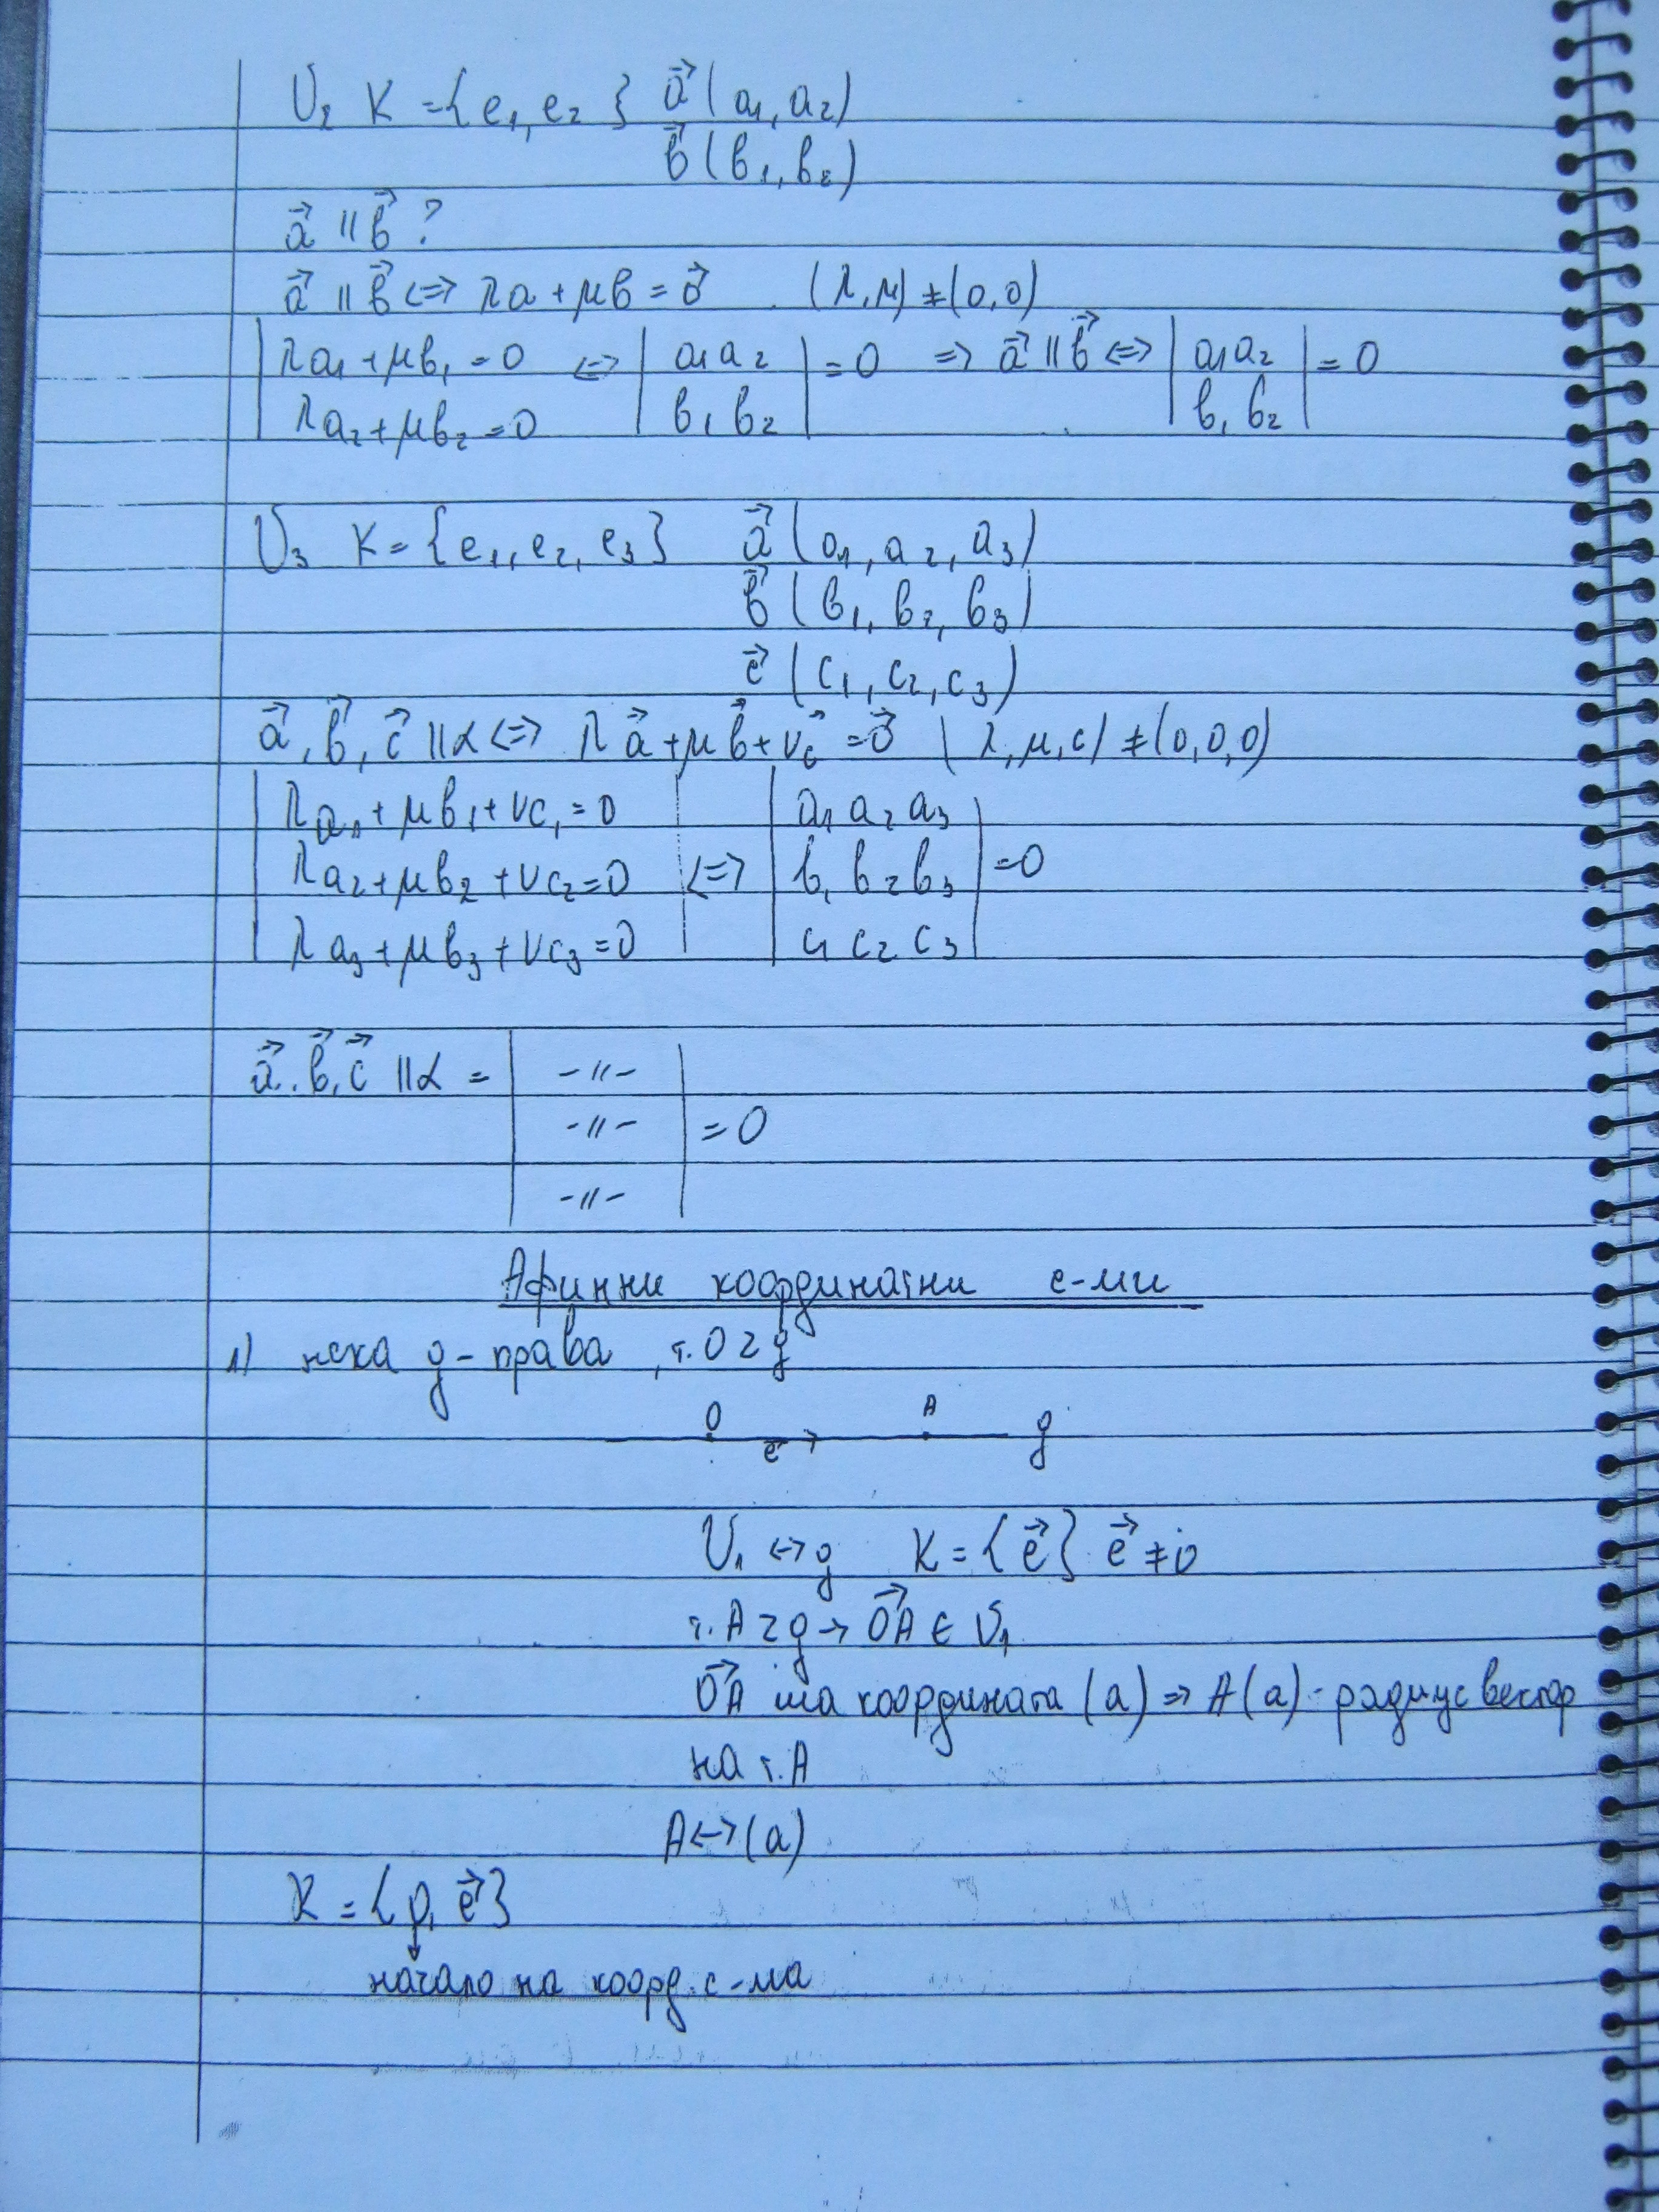 U₂ K = {e₁, e₂} a⃗ (a₁, a₂)
b⃗ (b₁, b₂)
a⃗ || b⃗ ?
a⃗ || b⃗ <=> λa + μb = o⃗ (λ, μ) ≠ (0,0)
| λa₁ + μb₁ = 0 <=> | a₁ a₂ | = 0 => a⃗ || b⃗ <=> | a₁ a₂ | = 0
| λa₂ + μb₂ = 0 | b₁ b₂ | | b₁ b₂ |
U₃ K = {e₁, e₂, e₃} a⃗ (a₁, a₂, a₃)
b⃗ (b₁, b₂, b₃)
c⃗ (c₁, c₂, c₃)
a⃗, b⃗, c⃗ || α <=> λa⃗ + μb⃗ + νc⃗ = o⃗ (λ, μ, c) ≠ (0,0,0)
| λa₁ + μb₁ + νc₁ = 0 | a₁ a₂ a₃ |
| λa₂ + μb₂ + νc₂ = 0 <=> | b₁ b₂ b₃ | = 0
| λa₃ + μb₃ + νc₃ = 0 | c₁ c₂ c₃ |
a⃗, b⃗, c⃗ || α = | -||- |
| -||- | = 0
| -||- |
Афинни координатни с-ми
1) нека g - права, т. O z g
O A g
e⃗
U₁ <-> g K = {e⃗} e⃗ ≠ o
т. A z g -> OA⃗ ∈ U₁
OA⃗ има координата (a) => A(a) - радиус вектор
на т. A
A <-> (a)
K = {O, e⃗}
↓
начало на коорд. с-ма